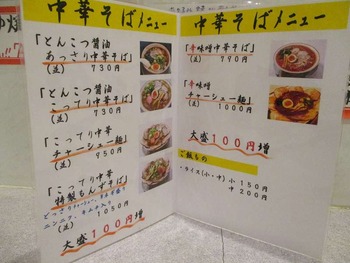 中華そばメニュー
「とんこつ醤油
あっさり中華そば」
(並) 730円
「とんこつ醤油
こってり中華そば」
(並) 730円
「こってり中華
チャーシュー麺」
(並) 950円
「こってり中華
特製もんずそば」
ニンニク、キムチ入り
(並) 1050円
大盛100円増
中華そばメニュー
「辛味噌中華そば」
(並) 790円
「辛味噌
チャーシュー麺」
(並) 1000円
大盛100円増
ご飯もの
・ライス(小・中) 小 150円
中 200円